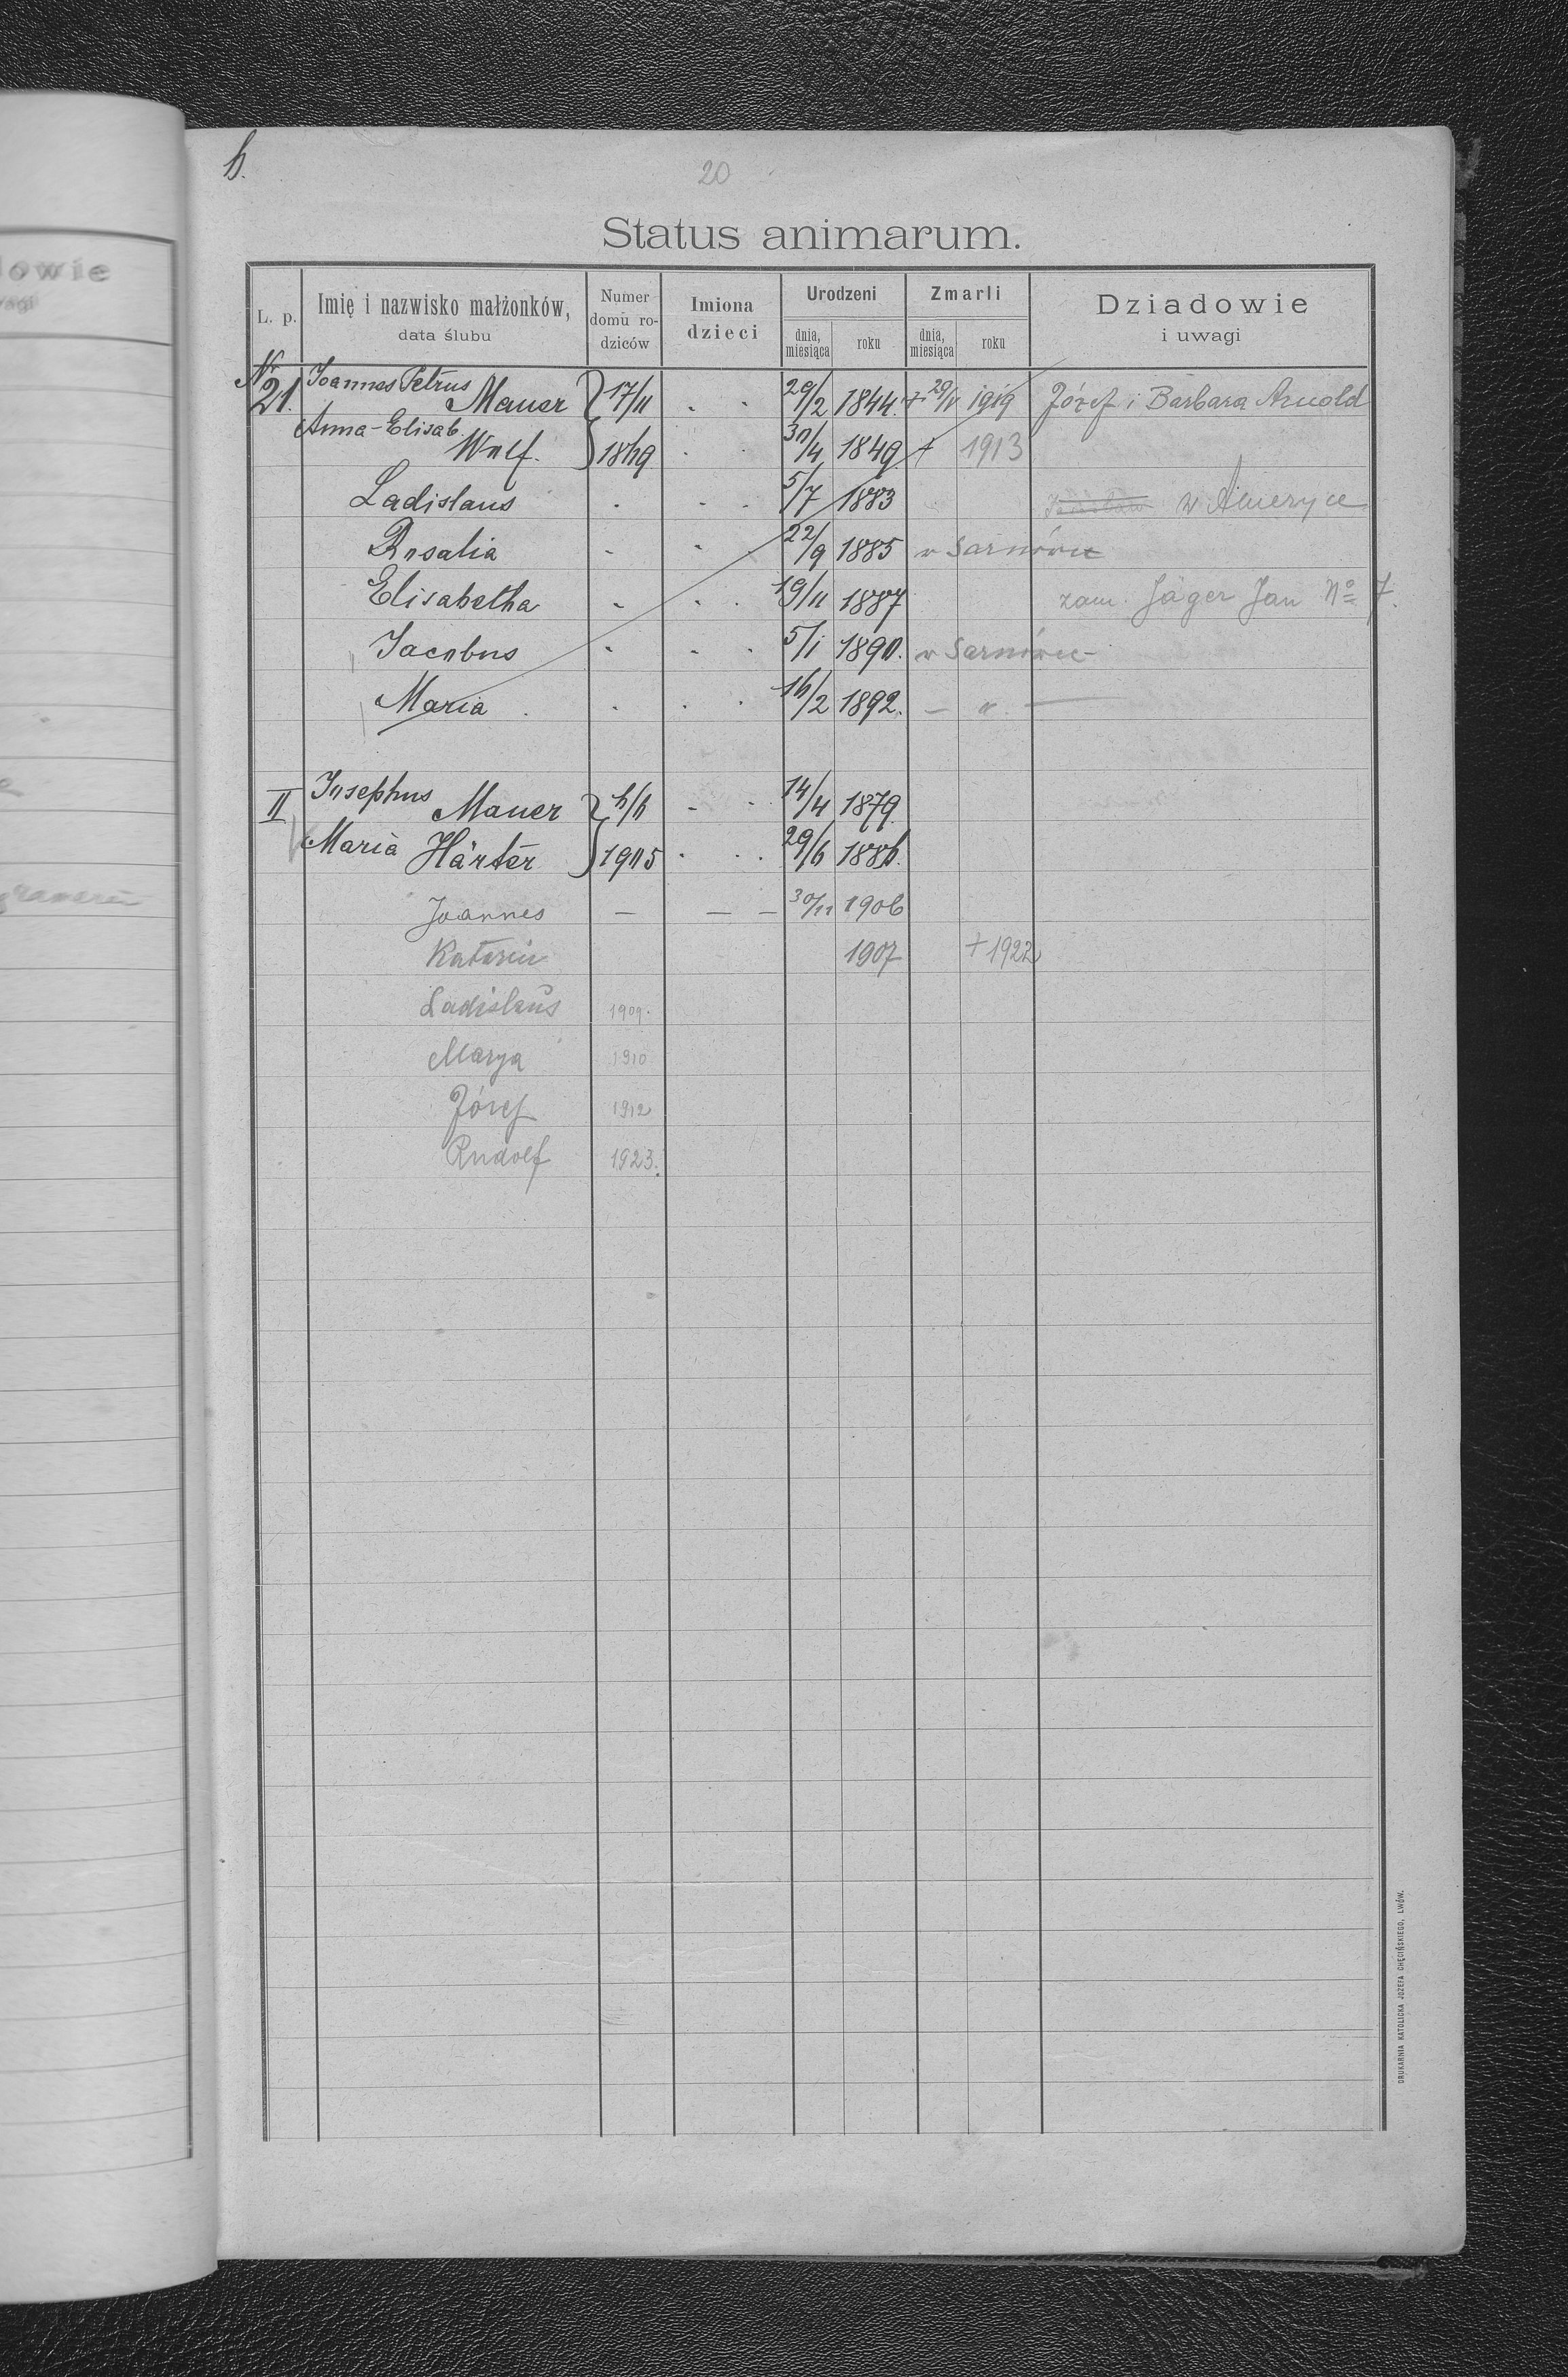 6.
20
Status animarum.
L. p.
Imię i nazwisko małżonków,
data ślubu
Numer
domu ro-
dziców
Imiona
dzieci
Urodzeni
dnia,
miesiąca
roku
Zmarli
dnia,
miesiąca
roku
Dziadowie
i uwagi
N
21. Joannes Petrus Mauer 17/11 29/2 1844. + 29/V 1919 Józef i Barbara Arnold
Anna-Elisab. Wolf. 1869 30/4 1849 + 1913
Ladislaus 5/7 1883 w Ameryce
Rosalia 22/9 1885 w Sarnówce
Elisabetha 19/11 1887 zam. Jäger Jan No 7.
Jacobus 5/1 1890. w Sarnówce
Maria 16/2 1892. — " —
II Josephus Mauer 6/6 14/4 1879.
Maria Härter 1905 29/6 1886.
Joannes — — — 30/11 1906
Katarin 1907 + 1922
Ladislaus 1909.
Marya 1910
Józef 1912
Rudolf 1923.
DRUKARNIA KATOLICKA JÓZEFA CHĘCIŃSKIEGO, LWÓW.